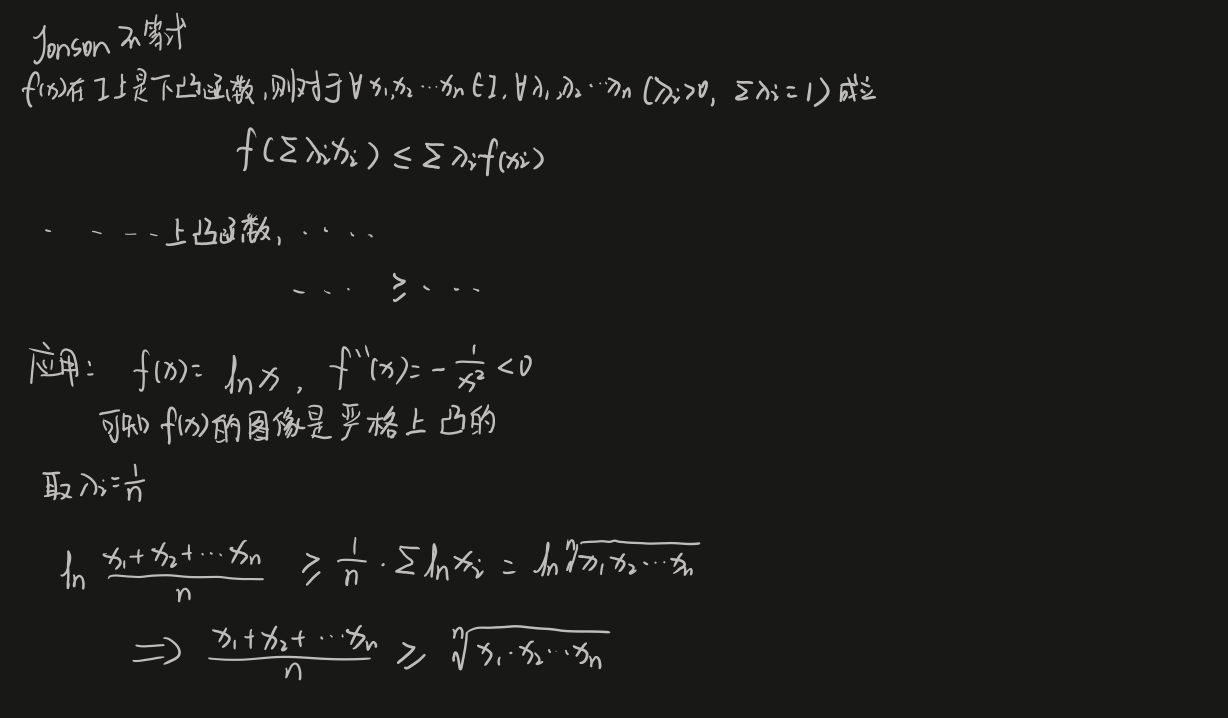 Jonson 不等式
f(x)在I上是下凸函数,则对于∀x₁,x₂⋯xₙ∈I,∀λ₁,λ₂⋯λₙ(λᵢ>0, Σλᵢ=1)成立
f(Σλᵢxᵢ) ≤ Σλᵢf(xᵢ)
· · - - - 上凸函数, · · · ·
- · · · ≥ · · · ·
应用: f(x)= ln x, f''(x)= -1/x² <0
可知 f(x)的图像是严格上凸的
取λᵢ=1/n
ln (x₁+x₂+⋯xₙ)/n ≥ 1/n · Σ ln xᵢ = ln ⁿ√(x₁x₂⋯xₙ)
⇒ (x₁+x₂+⋯xₙ)/n ≥ ⁿ√(x₁·x₂⋯xₙ)